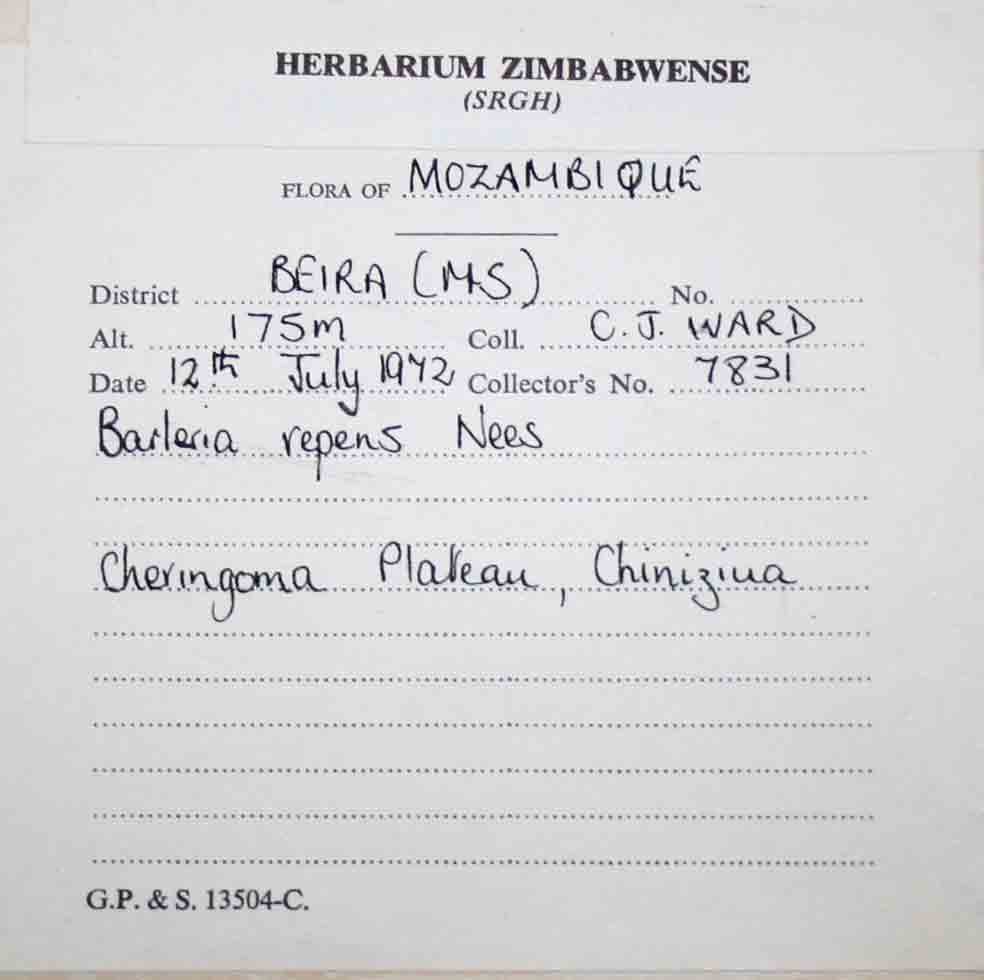 HERBARIUM ZIMBABWENSE
(SRGH)
FLORA OF MOZAMBIQUE
District BEIRA (MS) No.
Alt. 175m Coll. C.J. WARD
Date 12th July 1972 Collector's No. 7831
Barleria repens Nees
Cheringoma Plateau, Chiniziua
G.P. & S. 13504-C.